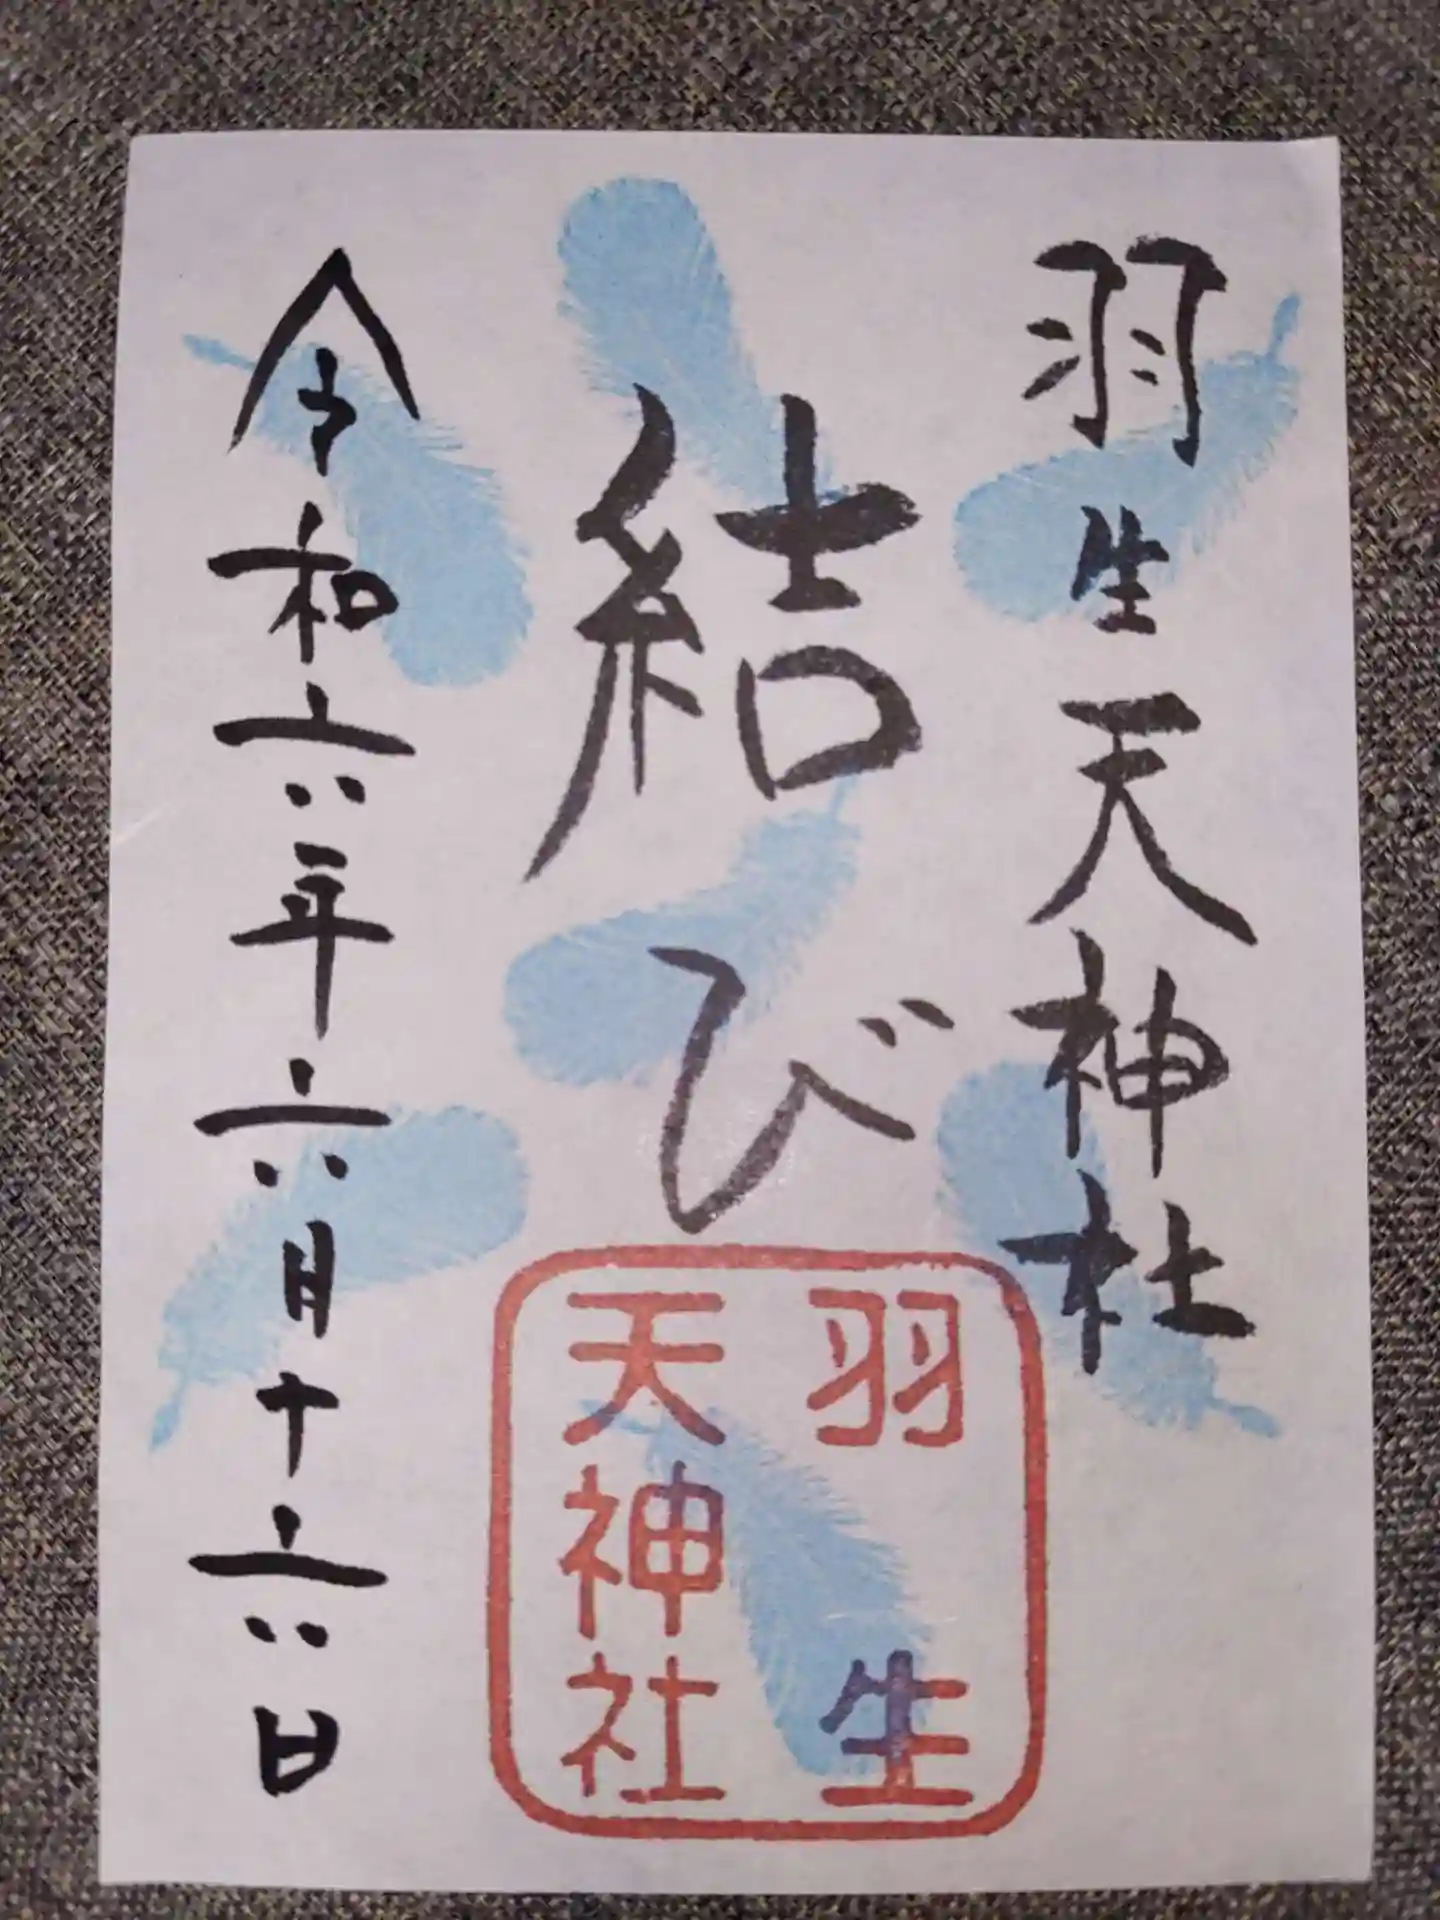 羽生天神社
結び
令和六年六月十六日
羽生
天神社